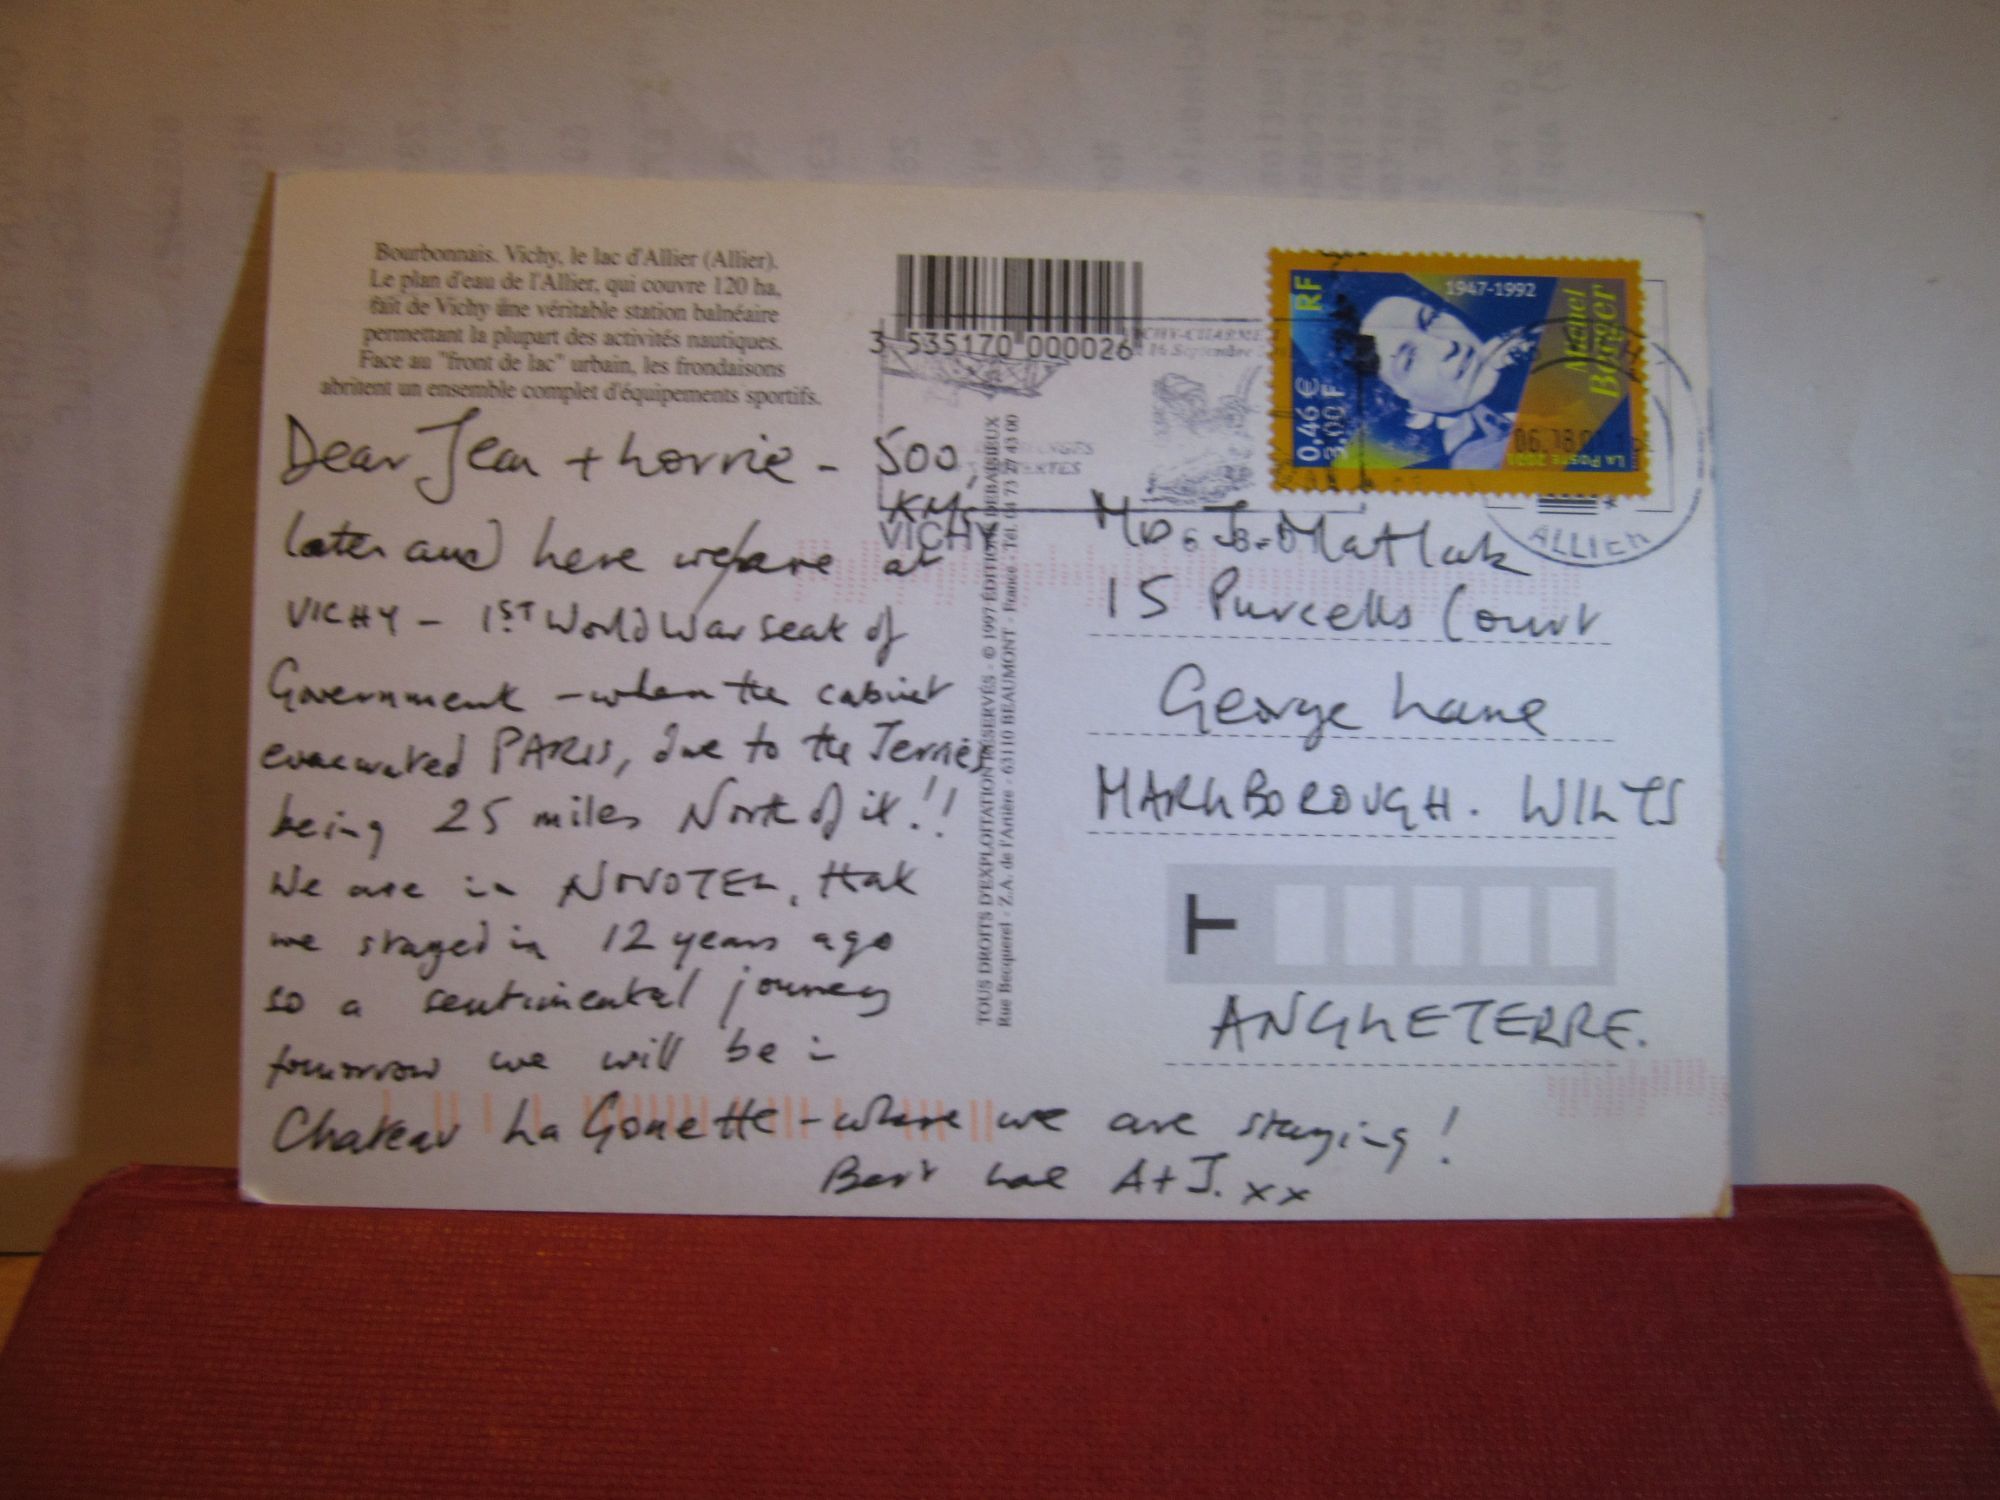 Bourbonnais. Vichy, le lac d'Allier (Allier).
Le plan d'eau de l'Allier, qui couvre 120 ha,
fait de Vichy une véritable station balnéaire
permettant la plupart des activités nautiques.
Face au "front de lac" urbain, les frondaisons
abritent un ensemble complet d'équipements sportifs.
Dear Jean + Lorrie - 500
KMS
later and here we are at
VICHY - 1ST World War seat of
Government - when the cabinet
evacuated PARIS, due to the Jerries
being 25 miles North of it!!
We are in NOVOTEL, that
we stayed in 12 years ago
so a sentimental journey
tomorrow we will be in
Chateau La Gonette - where we are staying!
Best love A + J. xx
3 535170 000026
16 Septembre
VICHY
TOUS DROITS D'EXPLOITATION RÉSERVÉS - © 1997 ÉDITIONS DEBAISIEUX
Rue Becquerel - Z.A. de l'Artière - 63110 BEAUMONT - France - Tél. 04 73 27 43 00
RF
1947-1992
Michel
Berger
0,46 €
3,00 F
LA POSTE 2001
ALLIER
J. Matlak
15 Purcells Court
George Lane
MARLBOROUGH. WILTS
T
ANGLETERRE.